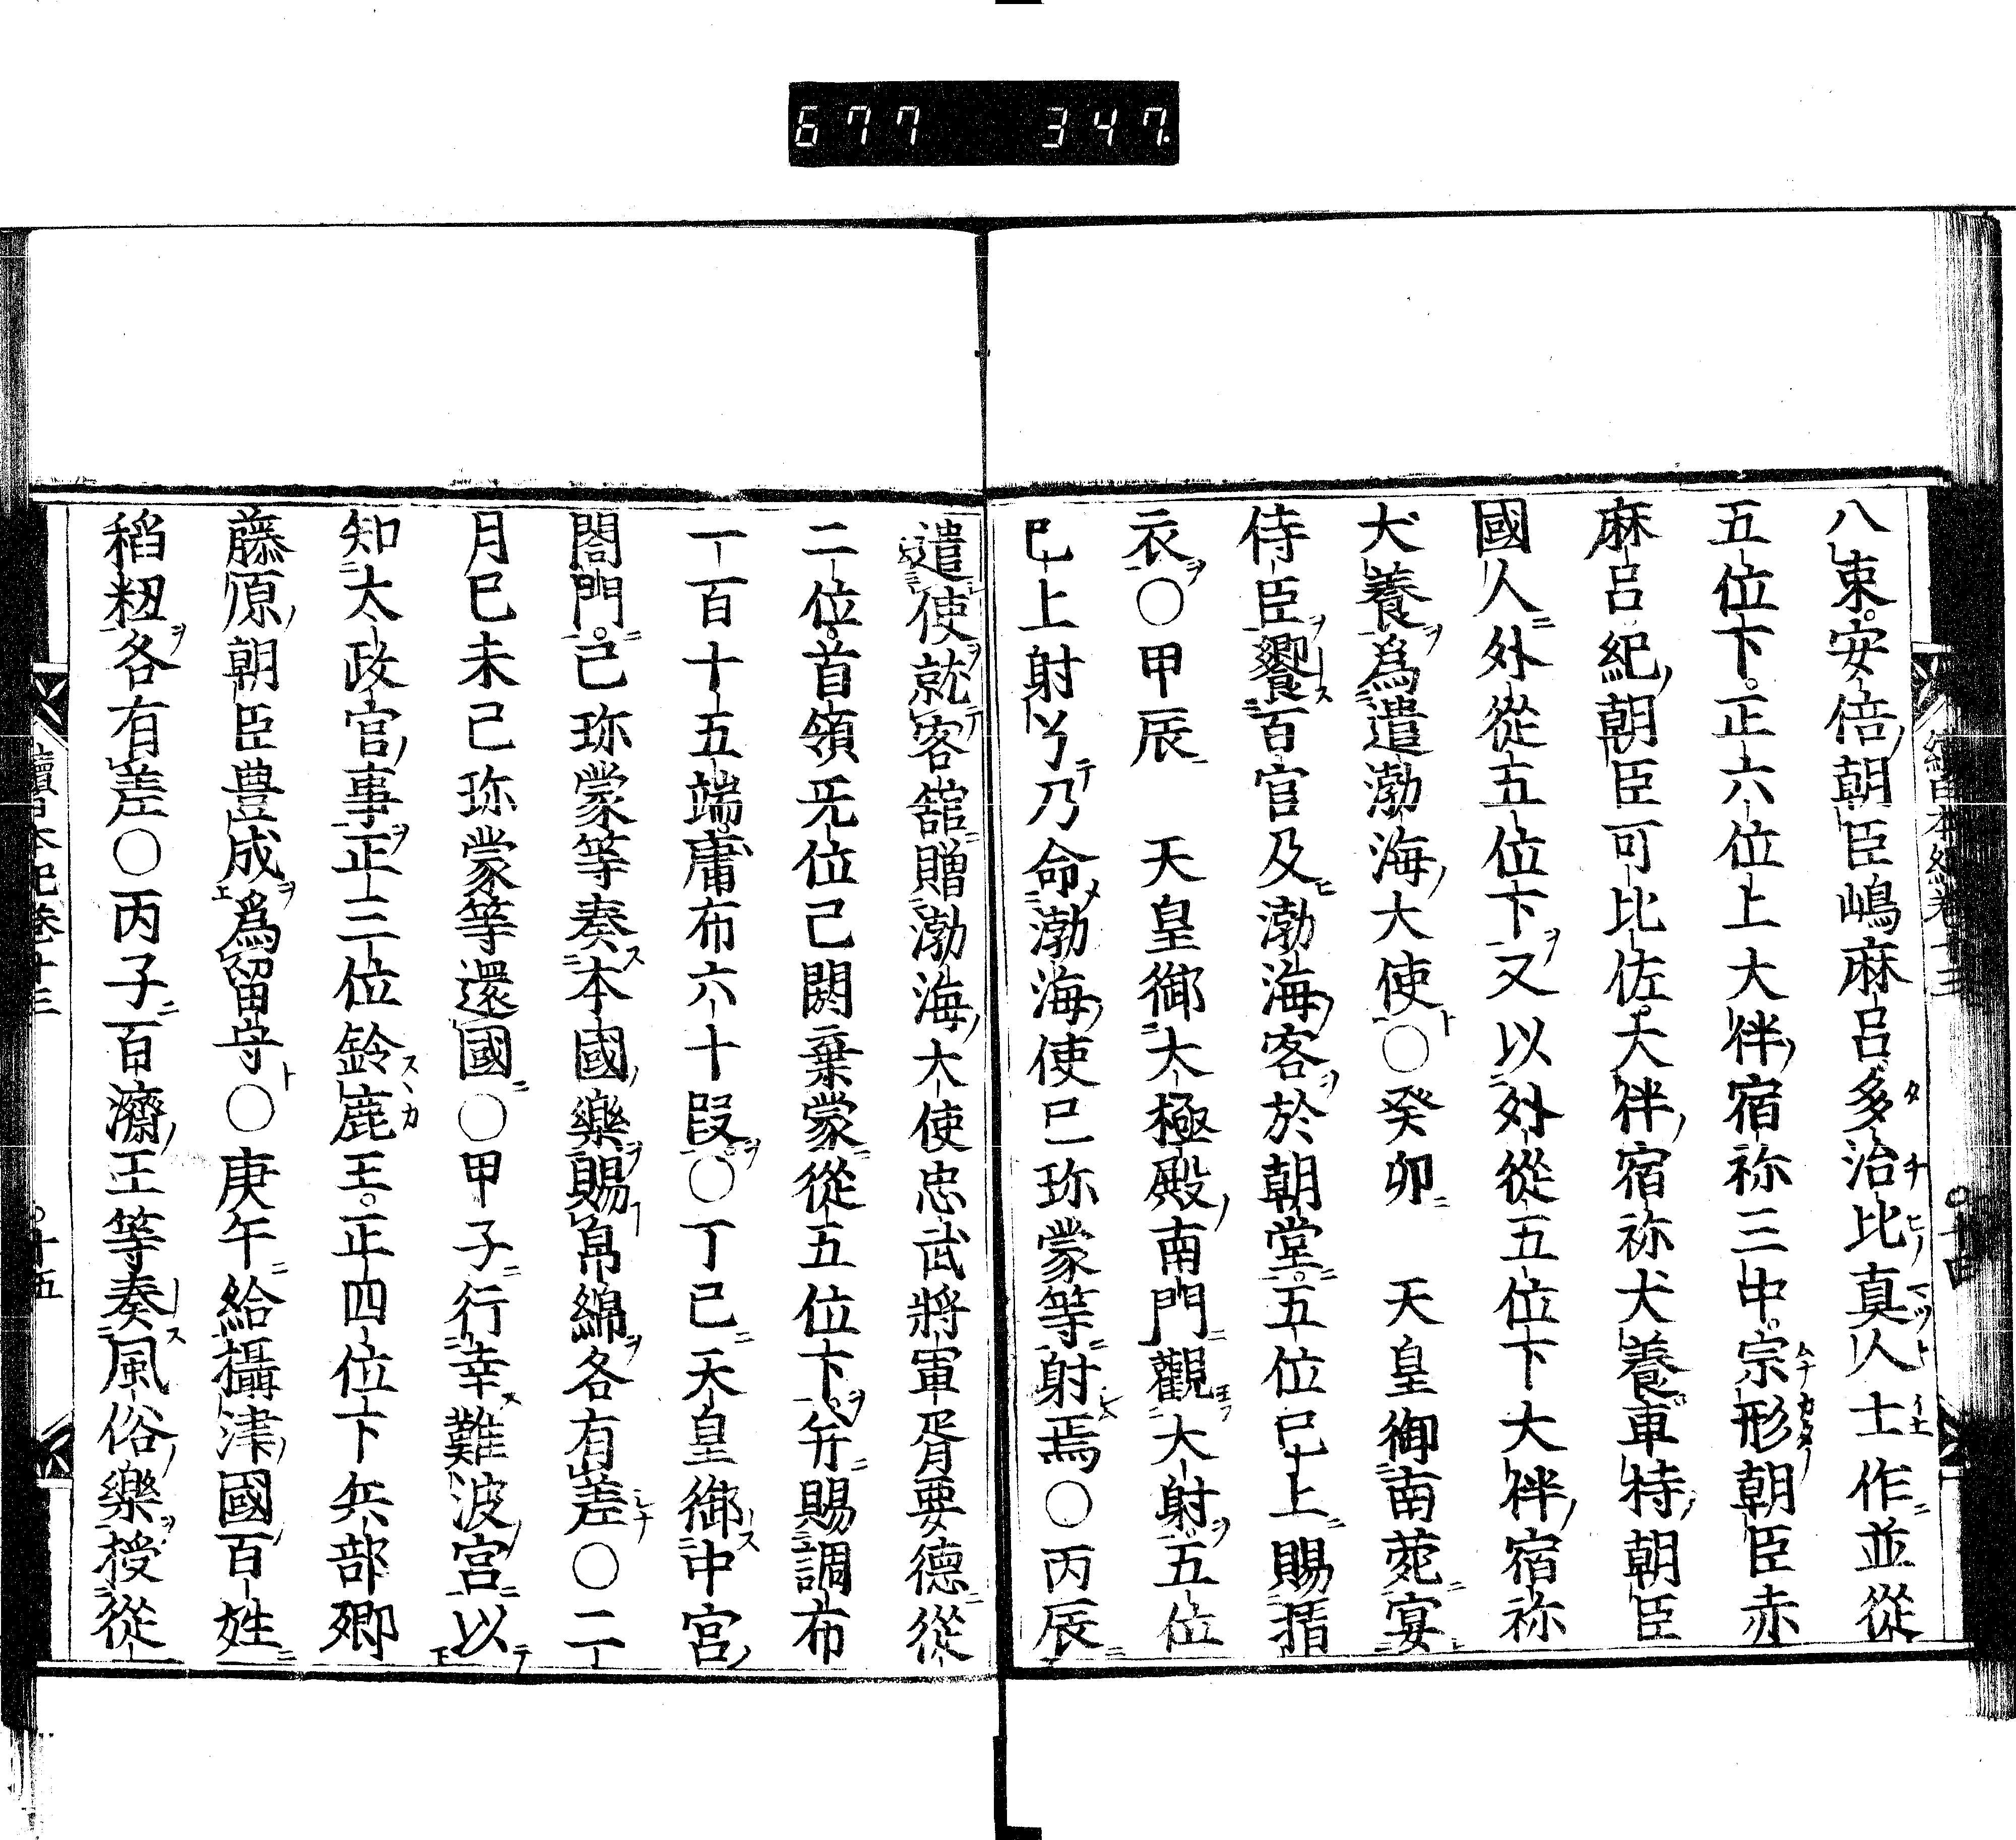 677 347
八束。安倍朝臣嶋麻呂多治比真人士作並從
五位下。正六位上大伴宿祢三中。宗形朝臣赤
麻呂紀朝臣可比佐。大伴宿祢犬養車特朝臣
國人外從五位下又以外從五位下大伴宿祢
犬養爲遣渤海大使〇癸卯　天皇御南苑宴
侍臣饗百官及渤海客於朝堂。五位已上賜揩
衣〇甲辰　天皇御大極殿南門觀大射五位
已上射了乃命渤海使已珎蒙等射焉〇丙辰
遣使就客舘贈渤海大使忠武將軍胥要德從
二位。首領旡位己閼棄蒙從五位下。并賜調布
一百十五端庸布六十段〇丁巳天皇御中宮
閤門。己珎蒙等奏本國樂賜帛綿各有差〇二
月已未己珎蒙等還國〇甲子行幸難波宮以
知太政官事正三位鈴鹿王。正四位下兵部卿
藤原朝臣豊成爲留守〇庚午給攝津國百姓
稻籾各有差〇丙子百濟王等奏風俗樂授從
續日本紀卷十三
〇十四
續日本紀卷十三
〇十五